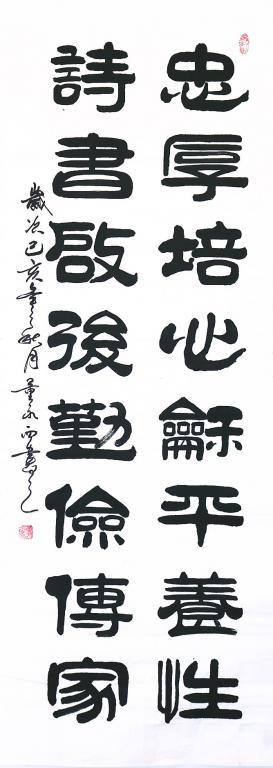 忠厚培心龢平養性
詩書啟後勤儉傳家
歲次己亥年秋月董永西書